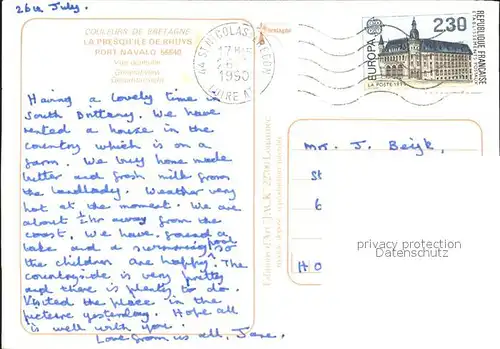 26th July.
COULEURS DE BRETAGNE
LA PRESQU'ILE DE RHUYS
PORT NAVALO 56640
Having a lovely time in
South Brittany. We have
rented a house in the
country which is on a
farm. We buy home made
butter and fresh milk from
the landlady. Weather very
hot at the moment. We are
about ½hr away from the
coast. We have found a
lake and a swimming pool
so the children are happy. The
countryside is very pretty
and there is plenty to do.
Visited the place in the
picture yesterday. Hope all
is well with you.
Love from us all, Jane.
44 ST NICOLAS REDON
1990
EUROPA
2,30
REPUBLIQUE FRANCAISE
LA POSTE 1990
Mrs. J. Beijk,
St
6
HO
privacy protection
Datenschutz